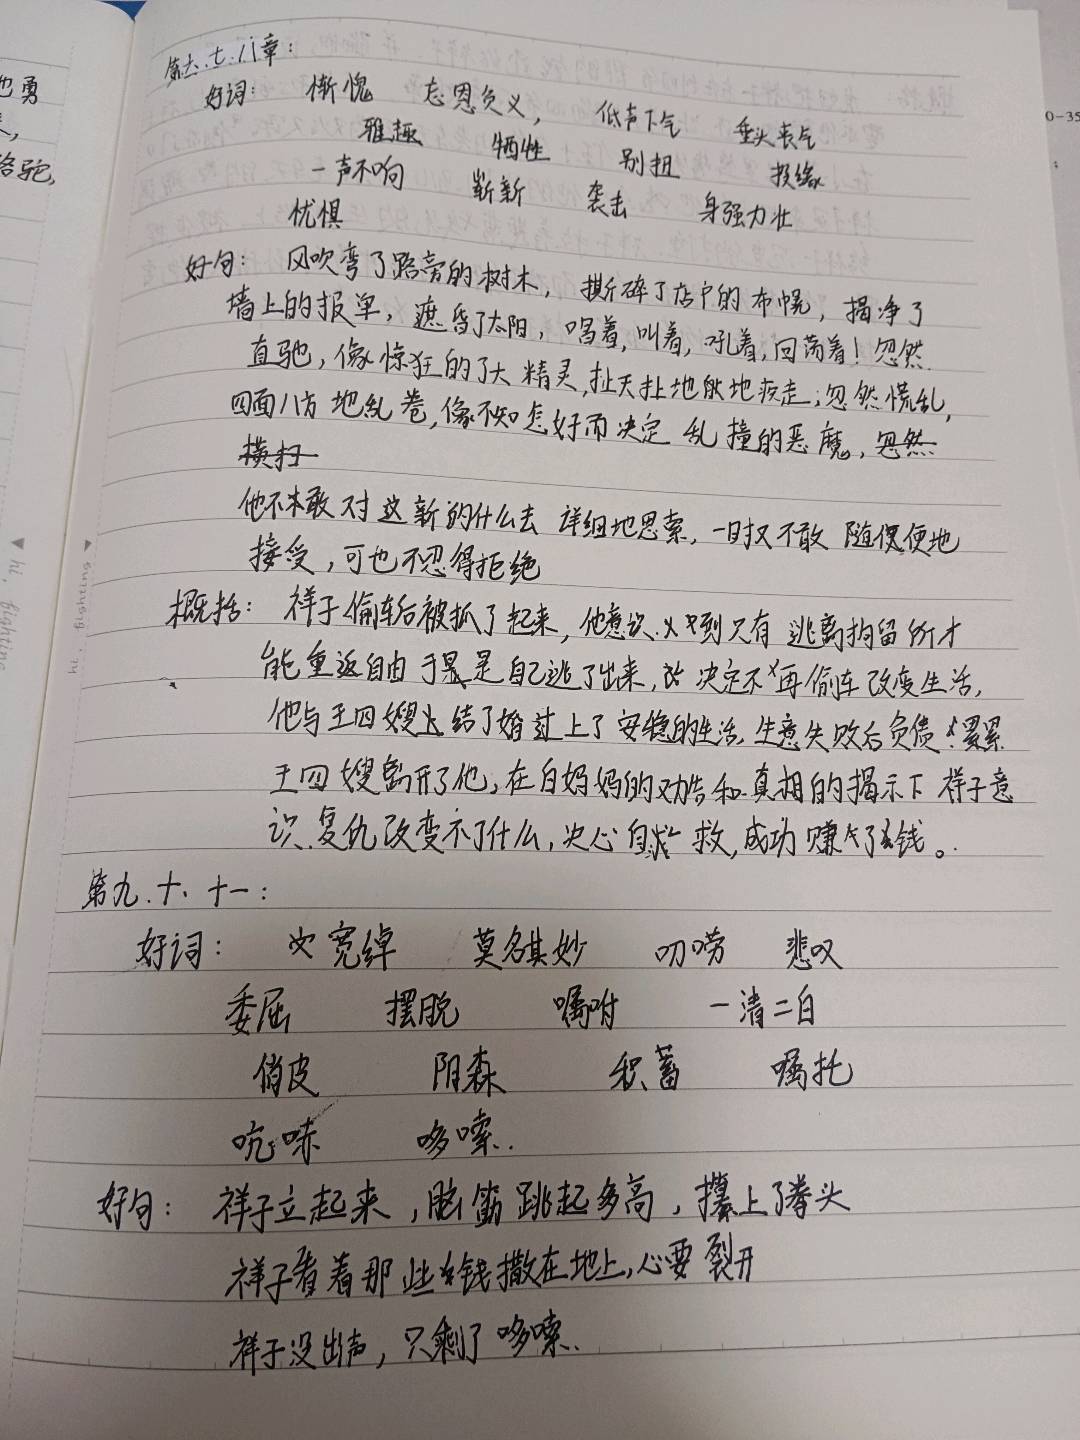 也勇
骆驼,
0-35
第六.七.八章:
好词: 惭愧 忘恩负义, 低声下气 垂头丧气
雅趣 牺牲 别扭 投缘
一声不响 崭新 袭击 身强力壮
忧惧
好句: 风吹弯了路旁的树木, 撕碎了店户的布幌, 揭净了
墙上的报单, 遮昏了太阳, 唱着, 叫着, 吼着, 回荡着! 忽然
直驰, 像惊狂的了大精灵, 扯天扯地般地疾走; 忽然慌乱,
四面八方地乱卷, 像不知怎好而决定乱撞的恶魔, 忽然
横扫
他不敢对这新的什么去详细地思索, 一时又不敢随便地
接受, 可也不忍得拒绝
概括: 祥子偷车后被抓了起来, 他意识到只有逃离拘留所才
能重返自由于是自己逃了出来, 决定不再偷车改变生活,
他与王四嫂结了婚过上了安稳的生活, 生意失败后负债累累
王四嫂离开了他, 在白妈妈的劝告和真相的揭示下祥子意
识复仇改变不了什么, 决心自救, 成功赚了钱。
第九.十、十一:
好词: 宽绰 莫名其妙 叨唠 悲叹
委屈 摆脱 嘱咐 一清二白
俏皮 阴森 积蓄 嘱托
吭哧 哆嗦.
好句: 祥子立起来, 脑筋跳起多高, 攥上了拳头
祥子看着那些钱撒在地上, 心要裂开
祥子没出声, 只剩了哆嗦.
hi, fighting
hi, fighting